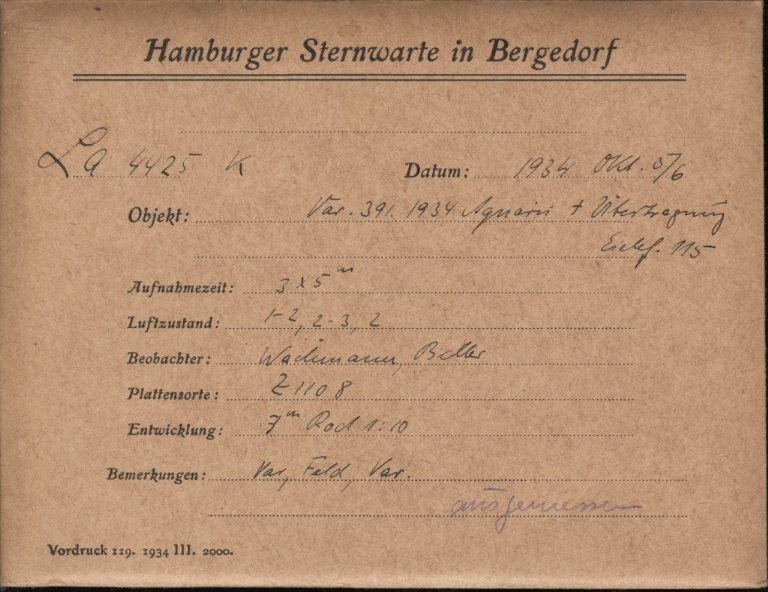 Hamburger Sternwarte in Bergedorf
La 4425 K Datum: 1934 Okt. 5/6
Objekt: Var. 391. 1934 Aquarii + Übertragung
115
Aufnahmezeit: 3 x 5 m
Luftzustand: 1-2, 2-3, 2
Beobachter: Wachmann, Beller
Plattensorte: Z 1108
Entwicklung: 7 m Rod 1:10
Bemerkungen: Var, Feld, Var.
ausgemessen
Vordruck 119. 1934 III. 2000.